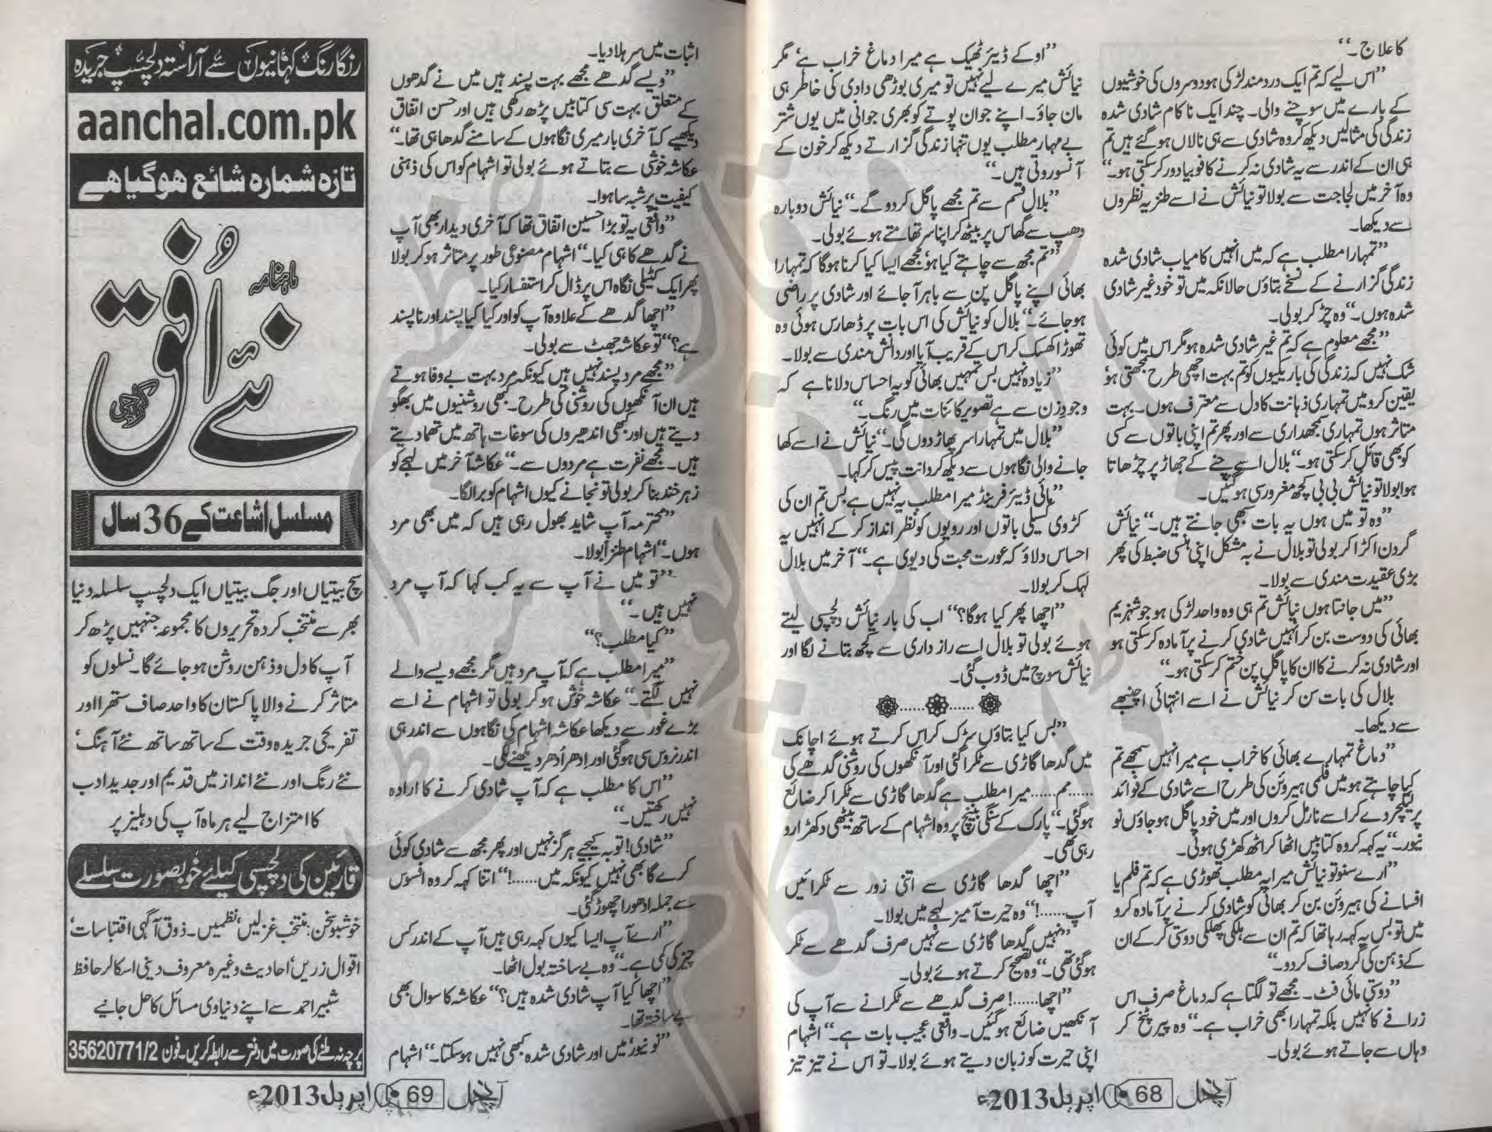 کا علاج۔‘‘
’’اس لیے کہ تم ایک دردمند لڑکی ہو دوسروں کی خوشیوں
کے بارے میں سوچنے والی۔ چند ایک ناکام شادی شدہ
زندگی کی مثالیں دیکھ کر وہ شادی سے ہی نالاں ہوگئے ہیں تم
ہی ان کے اندر سے یہ شادی نہ کرنے کا فوبیا دور کرسکتی ہو۔‘‘
وہ آخر میں لجاجت سے بولا تو نیائش نے اسے طنزیہ نظروں
سے دیکھا۔
’’تمہارا مطلب ہے کہ میں انہیں کامیاب شادی شدہ
زندگی گزارنے کے نسخے بتاؤں حالانکہ میں تو خود غیر شادی
شدہ ہوں۔‘‘ وہ چڑ کر بولی۔
’’مجھے معلوم ہے کہ تم غیر شادی شدہ ہو مگر اس میں کوئی
شک نہیں کہ زندگی کی باریکیوں کو تم بہت اچھی طرح سمجھتی ہو‘
یقین کرو میں تمہاری ذہانت کا دل سے معترف ہوں۔ بہت
متاثر ہوں تمہاری سمجھداری سے اور پھر تم اپنی باتوں سے کسی
کو بھی قائل کرسکتی ہو۔‘‘ بلال اسے چنے کے جھاڑ پر چڑھاتا
ہوا بولا تو نیائش بی بی کچھ مغرور سی ہوگئیں۔
’’وہ تو میں ہوں یہ بات سبھی جانتے ہیں۔‘‘ نیائش
گردن اکڑا کر بولی تو بلال نے بہ مشکل اپنی ہنسی ضبط کی پھر
بڑی عقیدت مندی سے بولا۔
’’میں جانتا ہوں نیائش تم ہی وہ واحد لڑکی ہو جو شہزیم
بھائی کی دوست بن کر انہیں شادی کرنے پر آمادہ کرسکتی ہو
اور شادی نہ کرنے کا ان کا پاگل پن ختم کرسکتی ہو۔‘‘
بلال کی بات سن کر نیائش نے اسے انتہائی اچنبھے
سے دیکھا۔
’’دماغ تمہارے بھائی کا خراب ہے میرا نہیں سمجھے تم
کیا چاہتے ہو میں فلمی ہیروئن کی طرح اسے شادی کے فوائد
پر لیکچر دے کر اسے نارمل کروں اور میں خود پاگل ہوجاؤں تو
نیور۔‘‘ یہ کہہ کر وہ کتابیں اٹھا کر اٹھ کھڑی ہوئی۔
’’ارے سنو تو نیائش میرا یہ مطلب تھوڑی ہے کہ تم فلم یا
افسانے کی ہیروئن بن کر بھائی کو شادی کرنے پر آمادہ کرو
میں تو بس یہ کہہ رہا تھا کہ تم ان سے ہلکی پھلکی دوستی کرکے ان
کے ذہن کی گرد صاف کردو۔‘‘
’’دوستی مائی فٹ۔ مجھے تو لگتا ہے کہ دماغ صرف اس
زرافے کا نہیں بلکہ تمہارا بھی خراب ہے۔‘‘ وہ پیر پٹخ کر
وہاں سے جاتے ہوئے بولی۔
’’اوکے ڈیئر ٹھیک ہے میرا دماغ خراب ہے‘ مگر
نیائش میرے لیے نہیں تو میری بوڑھی دادی کی خاطر ہی
مان جاؤ۔ اپنے جوان پوتے کو بھری جوانی میں یوں شتر
بے مہار مطلب یوں تنہا زندگی گزارتے دیکھ کر خون کے
آنسو روتی ہیں۔‘‘
’’بلال قسم سے تم مجھے پاگل کردو گے۔‘‘ نیائش دوبارہ
دھپ سے گھاس پر بیٹھ کر اپنا سر تھامتے ہوئے بولی۔
’’تم مجھ سے چاہتے کیا ہو‘ مجھے ایسا کیا کرنا ہوگا کہ تمہارا
بھائی اپنے پاگل پن سے باہر آجائے اور شادی پر راضی
ہوجائے۔‘‘ بلال کو نیائش کی اس بات پر ڈھارس ہوئی وہ
تھوڑا کھسک کر اس کے قریب آیا اور دانش مندی سے بولا۔
’’زیادہ نہیں بس تمہیں بھائی کو یہ احساس دلانا ہے کہ
وجود زن سے ہے تصویر کائنات میں رنگ۔‘‘
’’بلال میں تمہارا سر پھاڑ دوں گی۔‘‘ نیائش نے اسے کھا
جانے والی نگاہوں سے دیکھ کر دانت پیس کر کہا۔
’’مائی ڈیئر فرینڈ میرا مطلب یہ نہیں ہے بس تم ان کی
کڑوی کسیلی باتوں اور رویوں کو نظر انداز کرکے انہیں یہ
احساس دلاؤ کہ عورت محبت کی دیوی ہے۔‘‘ آخر میں بلال
لہک کر بولا۔
’’اچھا پھر کیا ہوگا؟‘‘ اب کی بار نیائش دلچسپی لیتے
ہوئے بولی تو بلال اسے رازداری سے کچھ بتانے لگا اور
نیائش سوچ میں ڈوب گئی۔
......
’’بس کیا بتاؤں سڑک کراس کرتے ہوئے اچانک
میں گدھا گاڑی سے ٹکرا گئی اور آنکھوں کی روشنی گدھے کی
......ہم...... میرا مطلب ہے گدھا گاڑی سے ٹکرا کر ضائع
ہوگئی۔‘‘ پارک کے سنگی بینچ پر وہ اشہام کے ساتھ بیٹھی دکھڑا رو
رہی تھی۔
’’اچھا گدھا گاڑی سے اتنی زور سے ٹکرائیں
آپ......!‘‘ وہ حیرت آمیز لہجے میں بولا۔
’’نہیں گدھا گاڑی سے نہیں صرف گدھے سے ٹکر
ہوگئی تھی۔‘‘ وہ تصحیح کرتے ہوئے بولی۔
’’اچھا......! صرف گدھے سے ٹکرانے سے آپ کی
آنکھیں ضائع ہوگئیں۔ واقعی عجیب بات ہے۔‘‘ اشہام
اپنی حیرت کو زبان دیتے ہوئے بولا۔ تو اس نے تیز تیز
آنچل 68 اپریل 2013ء
اثبات میں سر ہلادیا۔
’’ویسے گدھے مجھے بہت پسند ہیں میں نے گدھوں
کے متعلق بہت سی کتابیں پڑھ رکھی ہیں اور حسن اتفاق
دیکھیے کہ آخری بار میری نگاہوں کے سامنے گدھا ہی تھا۔‘‘
عکاشہ خوشی سے بتاتے ہوئے بولی تو اشہام کو اس کی ذہنی
کیفیت پر شبہ سا ہوا۔
’’واقعی یہ تو بڑا حسین اتفاق تھا کہ آخری دیدار بھی آپ
نے گدھے کا ہی کیا۔‘‘ اشہام مصنوعی طور پر متاثر ہوکر بولا
پھر ایک کٹیلی نگاہ اس پر ڈال کر استفسار کیا۔
’’اچھا گدھے کے علاوہ آپ کو اور کیا کیا پسند اور ناپسند
ہے؟‘‘ تو عکاشہ جھٹ سے بولی۔
’’مجھے مرد پسند نہیں ہیں کیونکہ مرد بہت بے وفا ہوتے
ہیں ان آنکھوں کی روشنی کی طرح۔ کبھی روشنیوں میں بھگو
دیتے ہیں اور کبھی اندھیروں کی سوغات ہاتھ میں تھما دیتے
ہیں۔ مجھے نفرت ہے مردوں سے۔‘‘ عکاشہ آخر میں لہجے کو
زہرخند بنا کر بولی تو نجانے کیوں اشہام کو برا لگا۔
’’محترمہ آپ شاید بھول رہی ہیں کہ میں بھی مرد
ہوں۔‘‘ اشہام طنزاً بولا۔
’’تو میں نے آپ سے یہ کب کہا کہ آپ مرد
نہیں ہیں۔‘‘
’’کیا مطلب؟‘‘
’’میرا مطلب ہے کہ آپ مرد ہیں مگر مجھے ویسے والے
نہیں لگتے۔‘‘ عکاشہ خوش ہوکر بولی تو اشہام نے اسے
بڑے غور سے دیکھا عکاشہ اشہام کی نگاہوں سے اندر ہی
اندر نروس سی ہوگئی اور ادھر اُدھر دیکھنے لگی۔
’’اس کا مطلب ہے کہ آپ شادی کرنے کا ارادہ
نہیں رکھتیں۔‘‘
’’شادی! توبہ کیجیے ہرگز نہیں اور پھر مجھ سے شادی کوئی
کرے گا بھی نہیں کیونکہ میں......!‘‘ اتنا کہہ کر وہ افسوس
سے جملہ ادھورا چھوڑ گئی۔
’’ارے آپ ایسا کیوں کہہ رہی ہیں آپ کے اندر کس
چیز کی کمی ہے۔‘‘ وہ بے ساختہ بول اٹھا۔
’’اچھا کیا آپ شادی شدہ ہیں؟‘‘ عکاشہ کا سوال بھی
بے ساختہ تھا۔
’’نو نیور میں اور شادی شدہ کبھی نہیں ہوسکتا۔‘‘ اشہام
رنگا رنگ کہانیوں سے آراستہ دلچسپ جریدہ
aanchal.com.pk
تازہ شمارہ شائع ہوگیا ہے
ماہنامہ
نئے اُفق
کراچی
مسلسل اشاعت کے 36 سال
سچ بیتیاں اور جگ بیتیاں ایک دلچسپ سلسلہ دنیا
بھر سے منتخب کردہ تحریروں کا مجموعہ جنہیں پڑھ کر
آپ کا دل و ذہن روشن ہوجائے گا۔ نسلوں کو
متاثر کرنے والا پاکستان کا واحد صاف ستھرا اور
تفریحی جریدہ وقت کے ساتھ ساتھ نئے آہنگ‘
نئے رنگ اور نئے انداز میں قدیم اور جدید ادب
کا امتزاج لیے ہر ماہ آپ کی دہلیز پر
قارئین کی دلچسپی کیلئے خوبصورت سلسلے
خوشبوئے سخن: منتخب غزلیں‘ نظمیں۔ ذوق آگہی اقتباسات‘
اقوال زریں‘ احادیث وغیرہ معروف دینی اسکالر حافظ
شبیر احمد سے اپنے دنیاوی مسائل کا حل جانیے
پرچہ نہ ملنے کی صورت میں دفتر سے رابطہ کریں۔ فون 35620771/2
آنچل 69 اپریل 2013ء